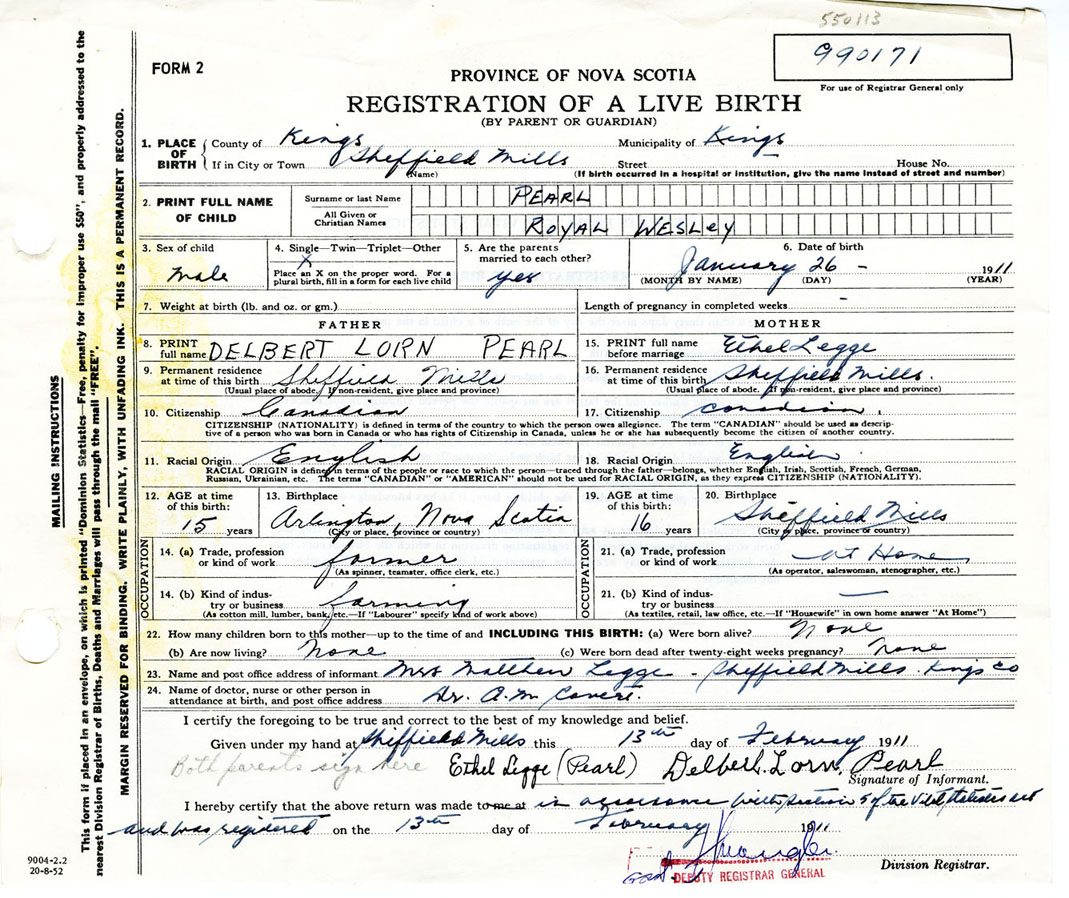 550113
990171
FORM 2
For use of Registrar General only
PROVINCE OF NOVA SCOTIA
REGISTRATION OF A LIVE BIRTH
(BY PARENT OR GUARDIAN)
1. PLACE OF BIRTH
County of Kings Municipality of Kings
If in City or Town Sheffield Mills Street House No.
(Name) (If birth occurred in a hospital or institution, give the name instead of street and number)
2. PRINT FULL NAME OF CHILD
Surname or last Name PEARL
All Given or Christian Names ROYAL WESLEY
3. Sex of child
male
4. Single—Twin—Triplet—Other
X
Place an X on the proper word. For a plural birth, fill in a form for each live child
5. Are the parents married to each other?
yes
6. Date of birth
January 26 - 1911
(MONTH BY NAME) (DAY) (YEAR)
7. Weight at birth (lb. and oz. or gm.) Length of pregnancy in completed weeks —
FATHER
8. PRINT full name DELBERT LORN PEARL
9. Permanent residence at time of this birth Sheffield Mills
(Usual place of abode. If non-resident, give place and province)
10. Citizenship Canadian
MOTHER
15. PRINT full name before marriage Ethel Legge
16. Permanent residence at time of this birth Sheffield Mills.
(Usual place of abode. If non-resident, give place and province)
17. Citizenship Canadian.
CITIZENSHIP (NATIONALITY) is defined in terms of the country to which the person owes allegiance. The term "CANADIAN" should be used as descrip-
tive of a person who was born in Canada or who has rights of Citizenship in Canada, unless he or she has subsequently become the citizen of another country.
11. Racial Origin English 18. Racial Origin English
RACIAL ORIGIN is defined in terms of the people or race to which the person—traced through the father—belongs, whether English, Irish, Scottish, French, German,
Russian, Ukrainian, etc. The terms "CANADIAN" or "AMERICAN" should not be used for RACIAL ORIGIN, as they express CITIZENSHIP (NATIONALITY).
12. AGE at time of this birth:
15 years
13. Birthplace
Arlington, Nova Scotia
(City or place, province or country)
19. AGE at time of this birth:
16 years
20. Birthplace
Sheffield Mills
(City or place, province or country)
OCCUPATION
14. (a) Trade, profession or kind of work farmer
(As spinner, teamster, office clerk, etc.)
14. (b) Kind of indus-
try or business farming
(As cotton mill, lumber, bank, etc.—If "Labourer" specify kind of work above)
OCCUPATION
21. (a) Trade, profession or kind of work at Home
(As operator, saleswoman, stenographer, etc.)
21. (b) Kind of indus-
try or business —
(As textiles, retail, law office, etc.—If "Housewife" in own home answer "At Home")
22. How many children born to this mother—up to the time of and INCLUDING THIS BIRTH: (a) Were born alive? None
(b) Are now living? None (c) Were born dead after twenty-eight weeks pregnancy? None
23. Name and post office address of informant Mrs Matthew Legge - Sheffield Mills Kings Co
24. Name of doctor, nurse or other person in attendance at birth, and post office address Dr. A. M Covert.
I certify the foregoing to be true and correct to the best of my knowledge and belief.
Given under my hand at Sheffield Mills this 13th day of February 1911
Both parents sign here Ethel Legge (Pearl) Delbert. Lorn. Pearl
Signature of Informant.
I hereby certify that the above return was made to me at in accordance with section 5 of the Vital Statistics act
and was registered on the 13th day of February 1911
Division Registrar.
DEPUTY REGISTRAR GENERAL
9004-2.2
20-8-52
MAILING INSTRUCTIONS
This form if placed in an envelope, on which is printed "Dominion Statistics—Free, penalty for improper use $50", and properly addressed to the
nearest Division Registrar of Births, Deaths and Marriages will pass through the mail "FREE".
MARGIN RESERVED FOR BINDING. WRITE PLAINLY, WITH UNFADING INK. THIS IS A PERMANENT RECORD.